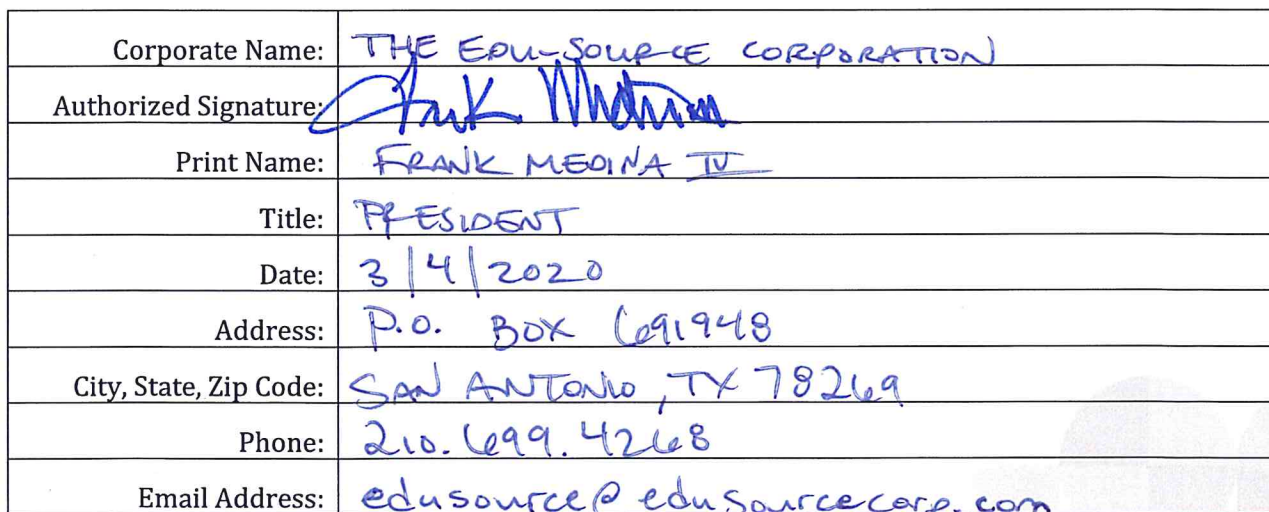 Corporate Name: THE EDU-SOURCE CORPORATION
Authorized Signature: Frank Medina
Print Name: FRANK MEDINA IV
Title: PRESIDENT
Date: 3/4/2020
Address: P.O. BOX 691948
City, State, Zip Code: SAN ANTONIO, TX 78269
Phone: 210.699.4268
Email Address: edusource@edusourcecorp.com